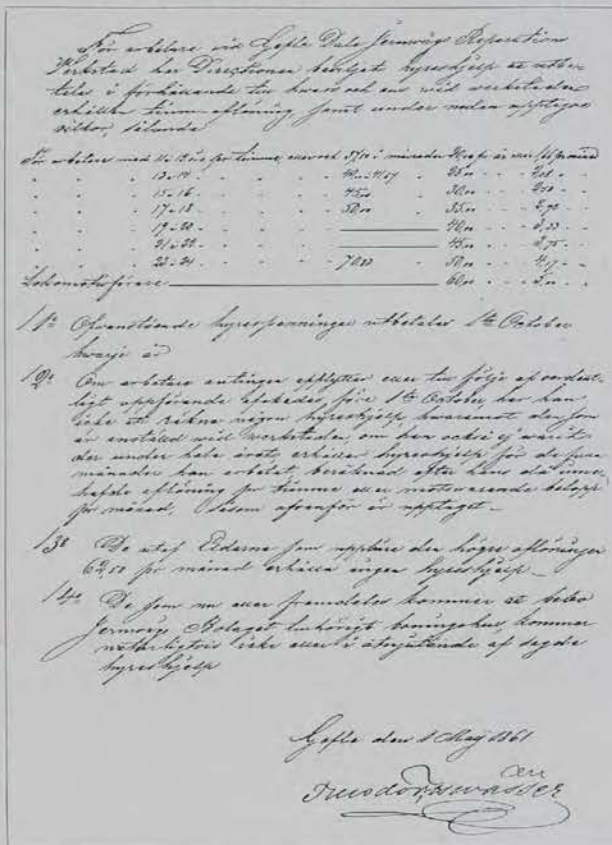 För arbetare vid Gefle Dala Jernvägs Reparations
Werkstad har Directionen beviljat hyreshjelp at utbe-
talas i förhållande till hvars och ens vid verkstaden
erhållen timm-aflöning, samt under nedan upptagne
vilkor, nemligen
För arbetare med 11 à 12 öre pr timme, eller och 37,50 i månaden
" " " 13-14 " " " " 25,00 " " " 2,08 " "
" " " 15-16 " " " 45,00 " 30,00 " " " 2,50 " "
" " " 17-18 " " " 50,00 " 35,00 " " "
" " " 19-20 " " " 40,00 " " " 3,33 " "
" " " 21-22 " " " 45,00 " " " 3,75 " "
" " " 23-24 " " " 70,83 " 50,00 " " " 4,17 " "
Lokomotivförare 60,00 " " " 5,00 " "
1º Ofvanstående hyrespenningar utbetalas 1sta October
hvarje år
2º Om arbetare antingen afflyttar eller till följe af oordent-
ligt uppförande afskedas före 1sta October, har han
icke at räkna någon hyreshjelp, hvaremot den som
är anstäld vid verkstaden, om han också ej varit
der under hela året, erhåller hyreshjelp för de
månader han arbetat, beräknad efter hans då inne-
hafde aflöning pr timme eller motsvarande belopp
pr månad, såsom ofvanför är upptaget.
3º De utaf Eldarne som uppbära den högre aflöningen
62,50 pr månad erhålla ingen hyreshjelp
4º De som nu eller framdeles kommer at bebo
Jernvägs Bolaget tillhörigt boningshus, kommer
naturligtvis icke eller i åtnjutande af sagde
hyreshjelp
Gefle den 1 Maj 1861